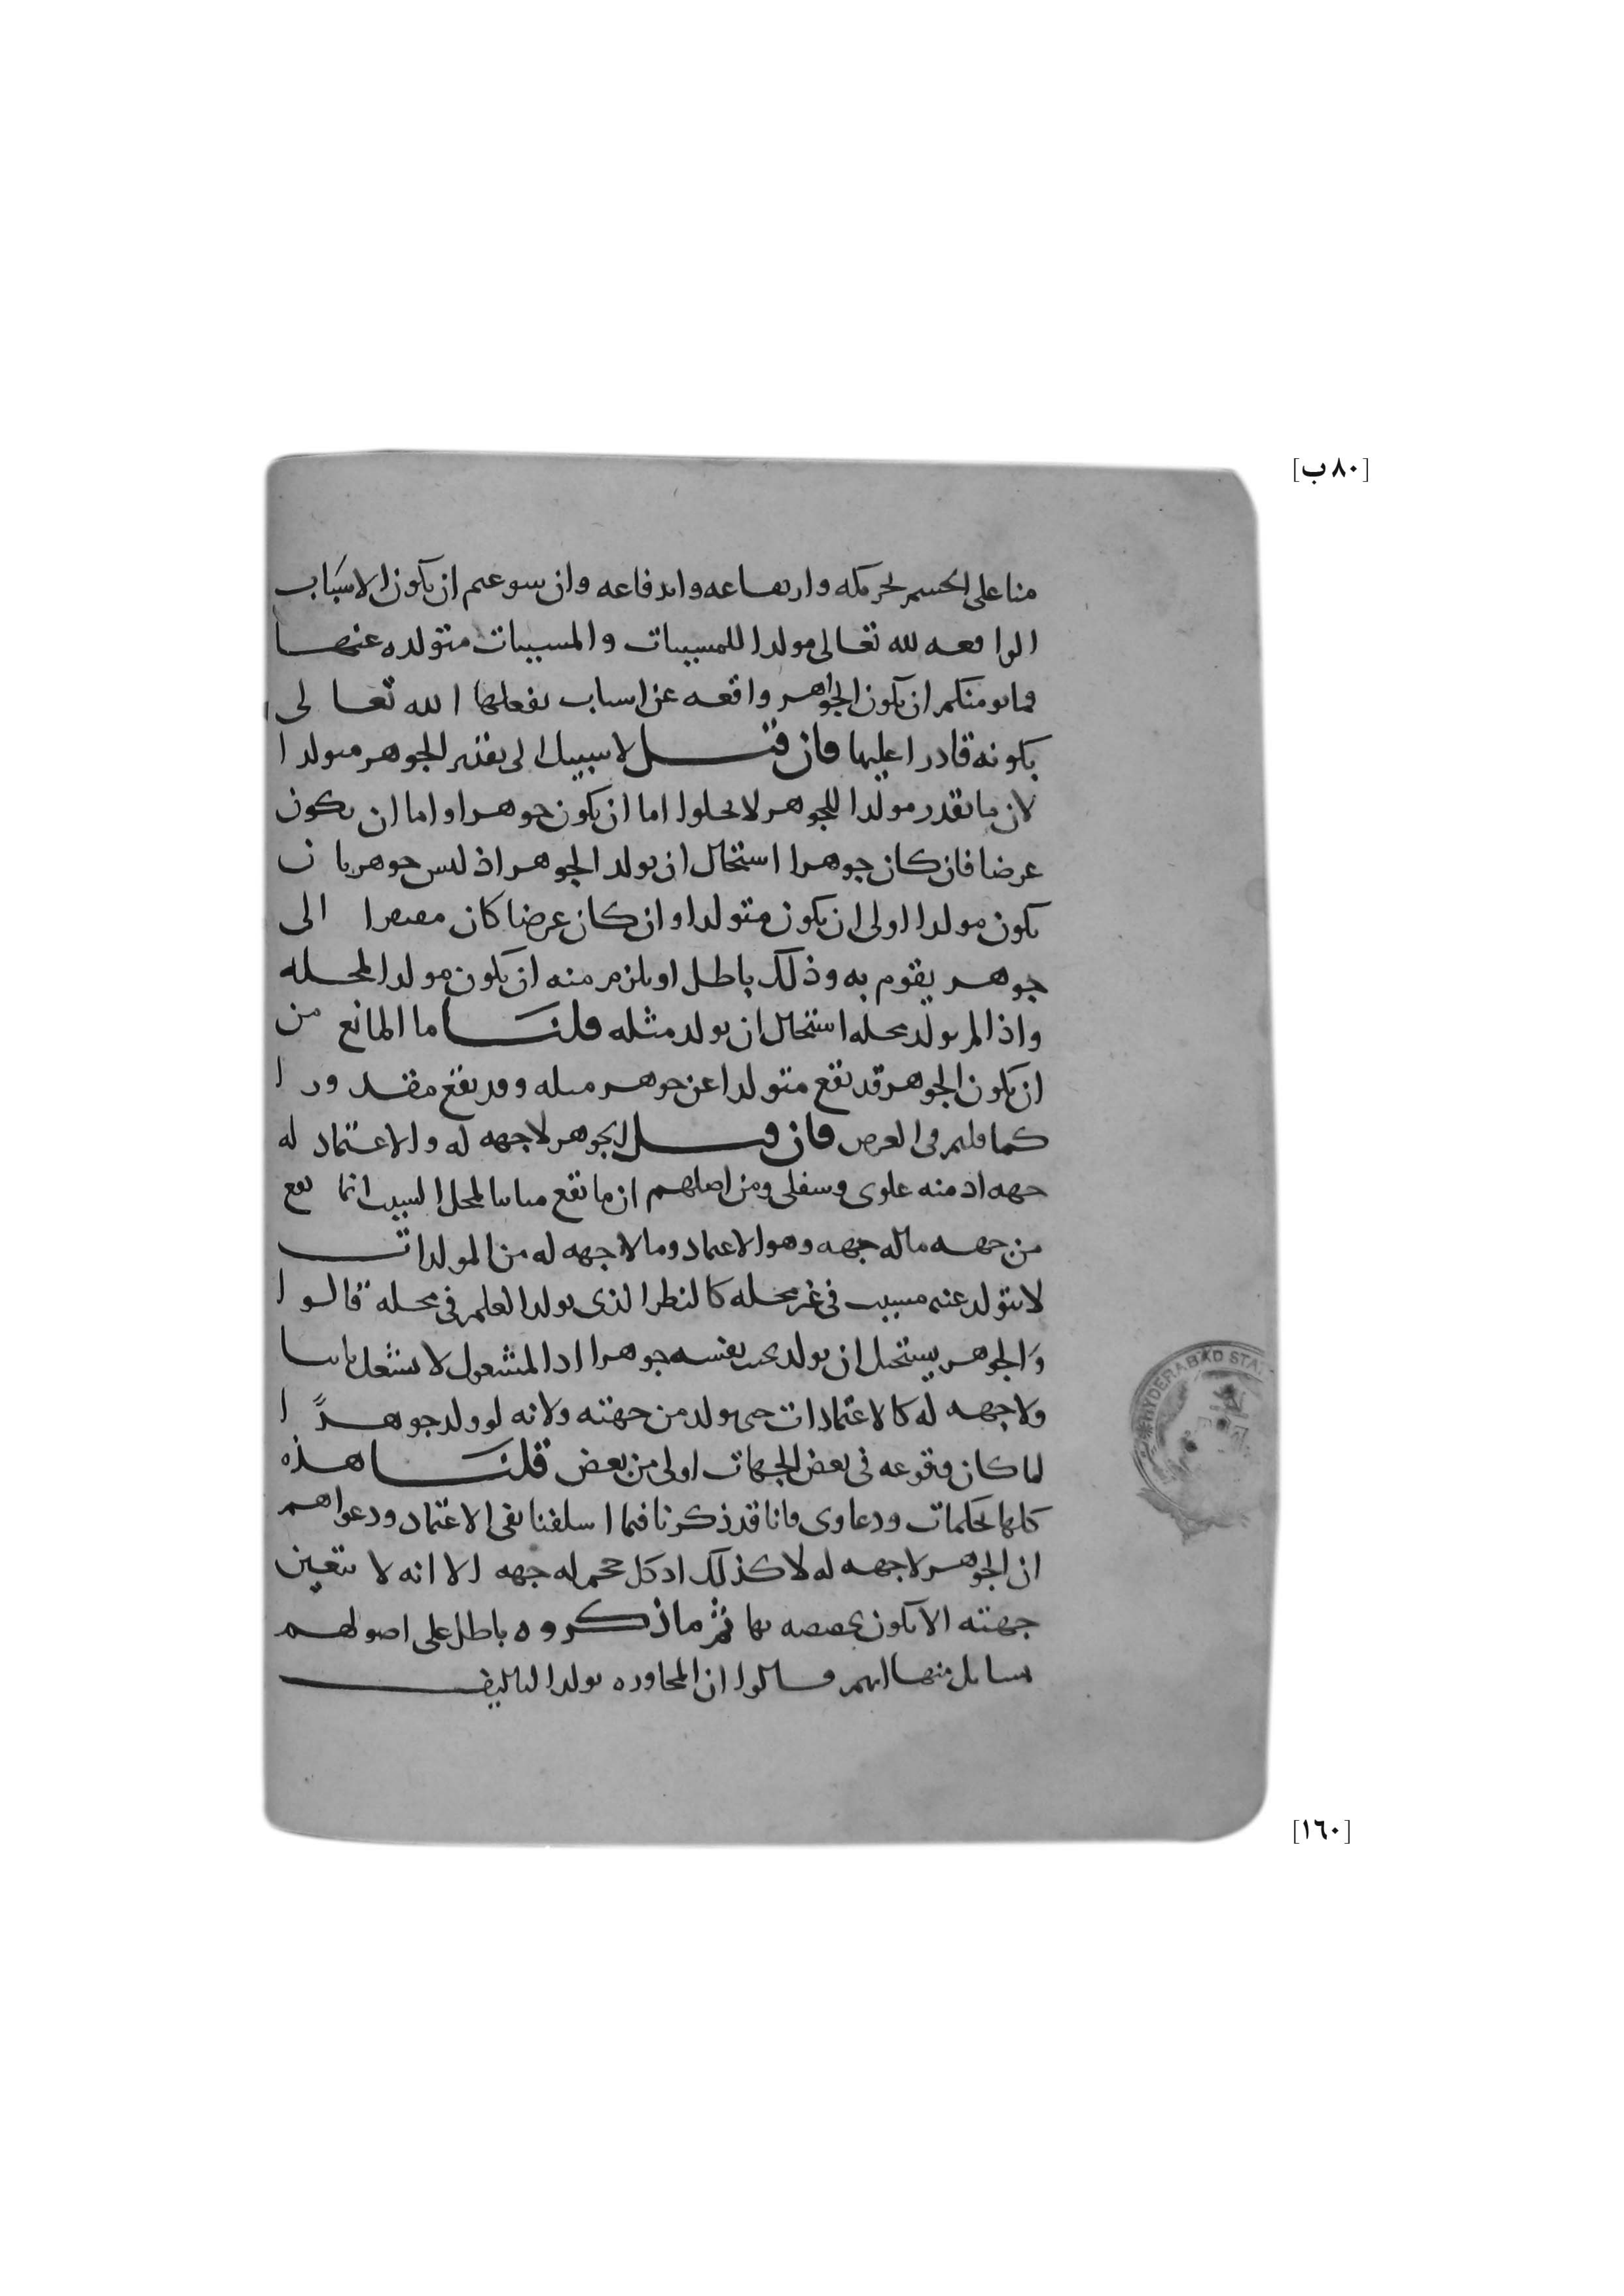 [٨٠ ب]
منا على الجسم لحركته وارتفاعه واندفاعه وان سوغتم ان يكون الاسباب
الواقعه لله تعالى مولدا للمسببات والمسببات متولده عنها
فما يومنكم ان يكون الجواهر واقعه عن اسباب يفعلها الله تعالى
بكونه قادرا عليها فان قيل لا سبيل الى تقدير الجوهر متولدا
لان ما يقدر مولدا للجوهر لا يخلوا اما ان يكون جوهرا واما ان يكون
عرضا فان كان جوهرا استحال ان يولد الجوهر اذ ليس جوهر بان
يكون مولدا اولى ان يكون متولدا وان كان عرضا كان مفتقرا الى
جوهر يقوم به وذلك باطل او يلزم منه ان يكون مولدا لمحله
واذا لم يولد محله استحال ان يولد مثله قلنا ما المانع من
ان يكون الجوهر قد تقع متولدا عن جوهر مثله وقد يقع مقدورا
كما قلتم فى العرض فان قيل الجوهر لا جهه له والاعتماد له
جهه اذ منه علوى وسفلى ومن اصلهم ان ما تقع مباينا لمحل السبب انما يقع
من جهه ما له جهه وهو الاعتماد وما لا جهه له من المولدات
لا يتولد عنه مسبب فى غير محله كالنظر الذى يولد العلم فى محله قالوا
والجوهر يستحيل ان يولد بحيث نفسه جوهرا اذ المشغول لا يشغل ثانيا
ولا جهه له كالاعتمادات حتى يولد من جهته ولانه لو ولد جوهرًا
لما كان وقوعه فى بعض الجهات اولى من بعض قلنا هذه
كلها تحكمات ودعاوى فانا قد ذكرنا فيما اسلفنا نفى الاعتماد ودعواهم
ان الجوهر لا جهه له لا كذلك اذ كل متحيز له جهه الا انه لا تتعين
جهته الا بكون يخصصه بها ثم ما ذكروه باطل على اصولهم
بمسايل منها انهم قالوا ان المجاوره تولد التاليف
[١٦٠]